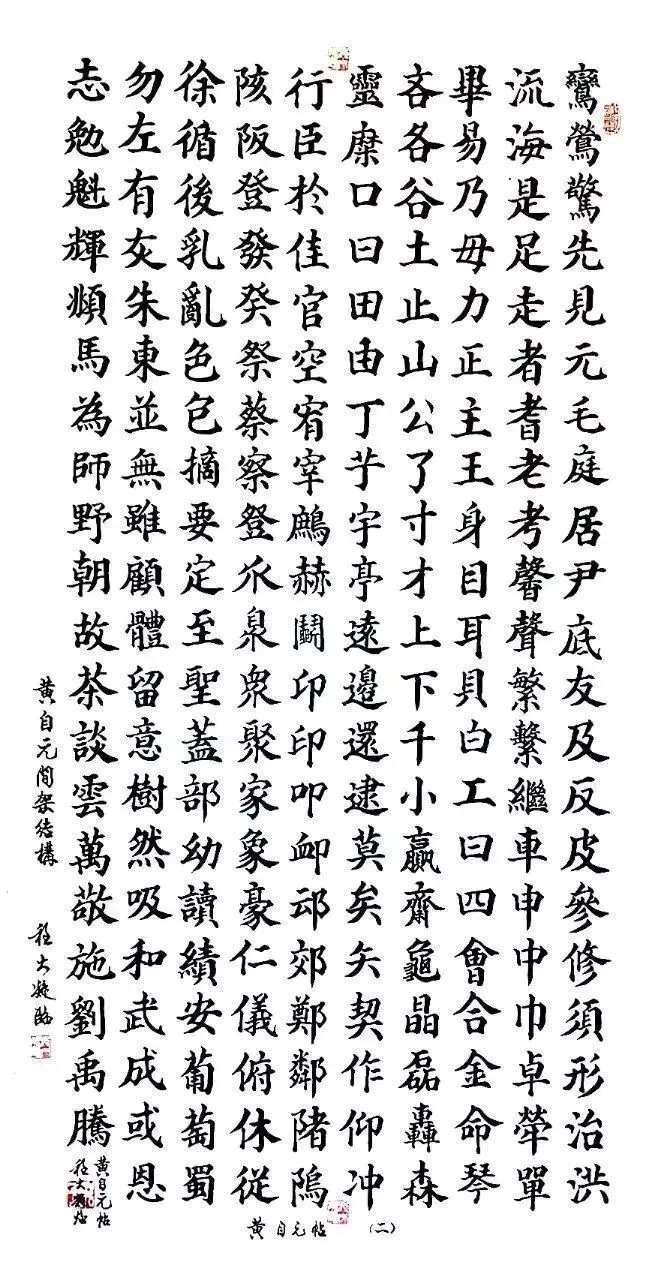 鸞鶯驚先見元毛庭居尹底友及反皮參修須形治洪
流海是足走者耆老考馨聲繁繫繼車申中巾卓犖單
畢易乃毋力正主王身目耳貝白工曰四會合金命琴
吝各谷土止山公了寸才上下千小贏齋龜晶磊轟森
靈糜口曰田由丁于宇亭遠邊還逮莫矣矢契作仰冲
行臣於佳官空宥宰鷓赫鬪卬印叩卹邛郊鄭鄰陼隖
陔阪登發癸祭蔡察登爪泉衆聚家象豪仁儀俯休從
徐循後乳亂色包摘要定至聖蓋部幼讀績安葡萄蜀
勿左有灰朱東並無雖顧體留意樹然吸和武成或恩
志勉魁輝頻馬為師野朝故茶談雲萬敬施劉禹騰
黄自元帖
黄自元間架結構
程大凝臨
黄自元帖 （二）